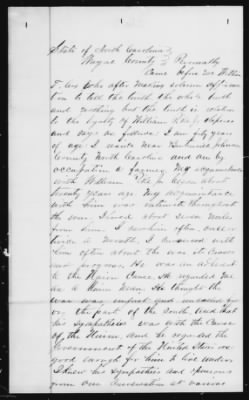 State of North Carolina }
Wayne County } Personally
Came before me William
T. who after making solemn affirma-
tion to tell the truth the whole truth
and nothing but the truth in relation
to the loyalty of William
and says as follows: I am fifty years
of age: I reside Near Johnson
County North Carolina and am by
occupation a farmer. My acquaintance
with William began about
twenty years ago. My acquaintance
with him was intimate throughout
the war. I lived about seven miles
from him. I saw him often, once or
twice a Month. I conversed with
him often about the war its Causes
and progress. He was an adherent
to the Union Cause. He regarded me
as a Union Man. He thought the
war was unjust and uncalled for
on the part of the South, and that
his Sympathies was with the Cause
of the Union, and he regarded the
Government of the United States as
good enough for him to live under.
I knew his Sympathies and opinions
from our Conversation at various